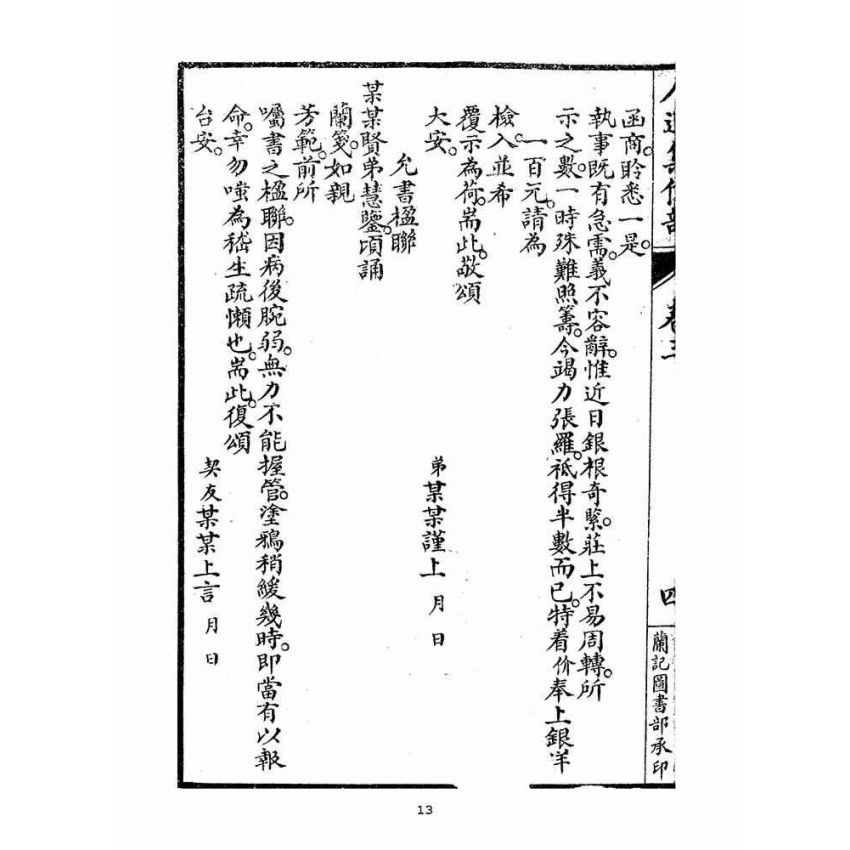 卷三
四
蘭記圖書部承印
函商。聆悉一是。
執事既有急需。義不容辭。惟近日銀根奇緊。莊上不易周轉。所
示之數。一時殊難照籌。今竭力張羅。祗得半數而已。特着价奉上銀洋
一百元。請為
檢入。並希
覆示為荷。耑此。敬頌
大安。
弟某某謹上 月 日
允書楹聯
某某賢弟慧鑒。頃誦
蘭箋。如親
芳範。前所
囑書之楹聯。因病後腕弱。無力不能握管。塗鴉稍緩幾時。即當有以報
命。幸勿嗤為嵇生疏懶也。耑此。復頌
台安。
契友某某上言 月 日
13